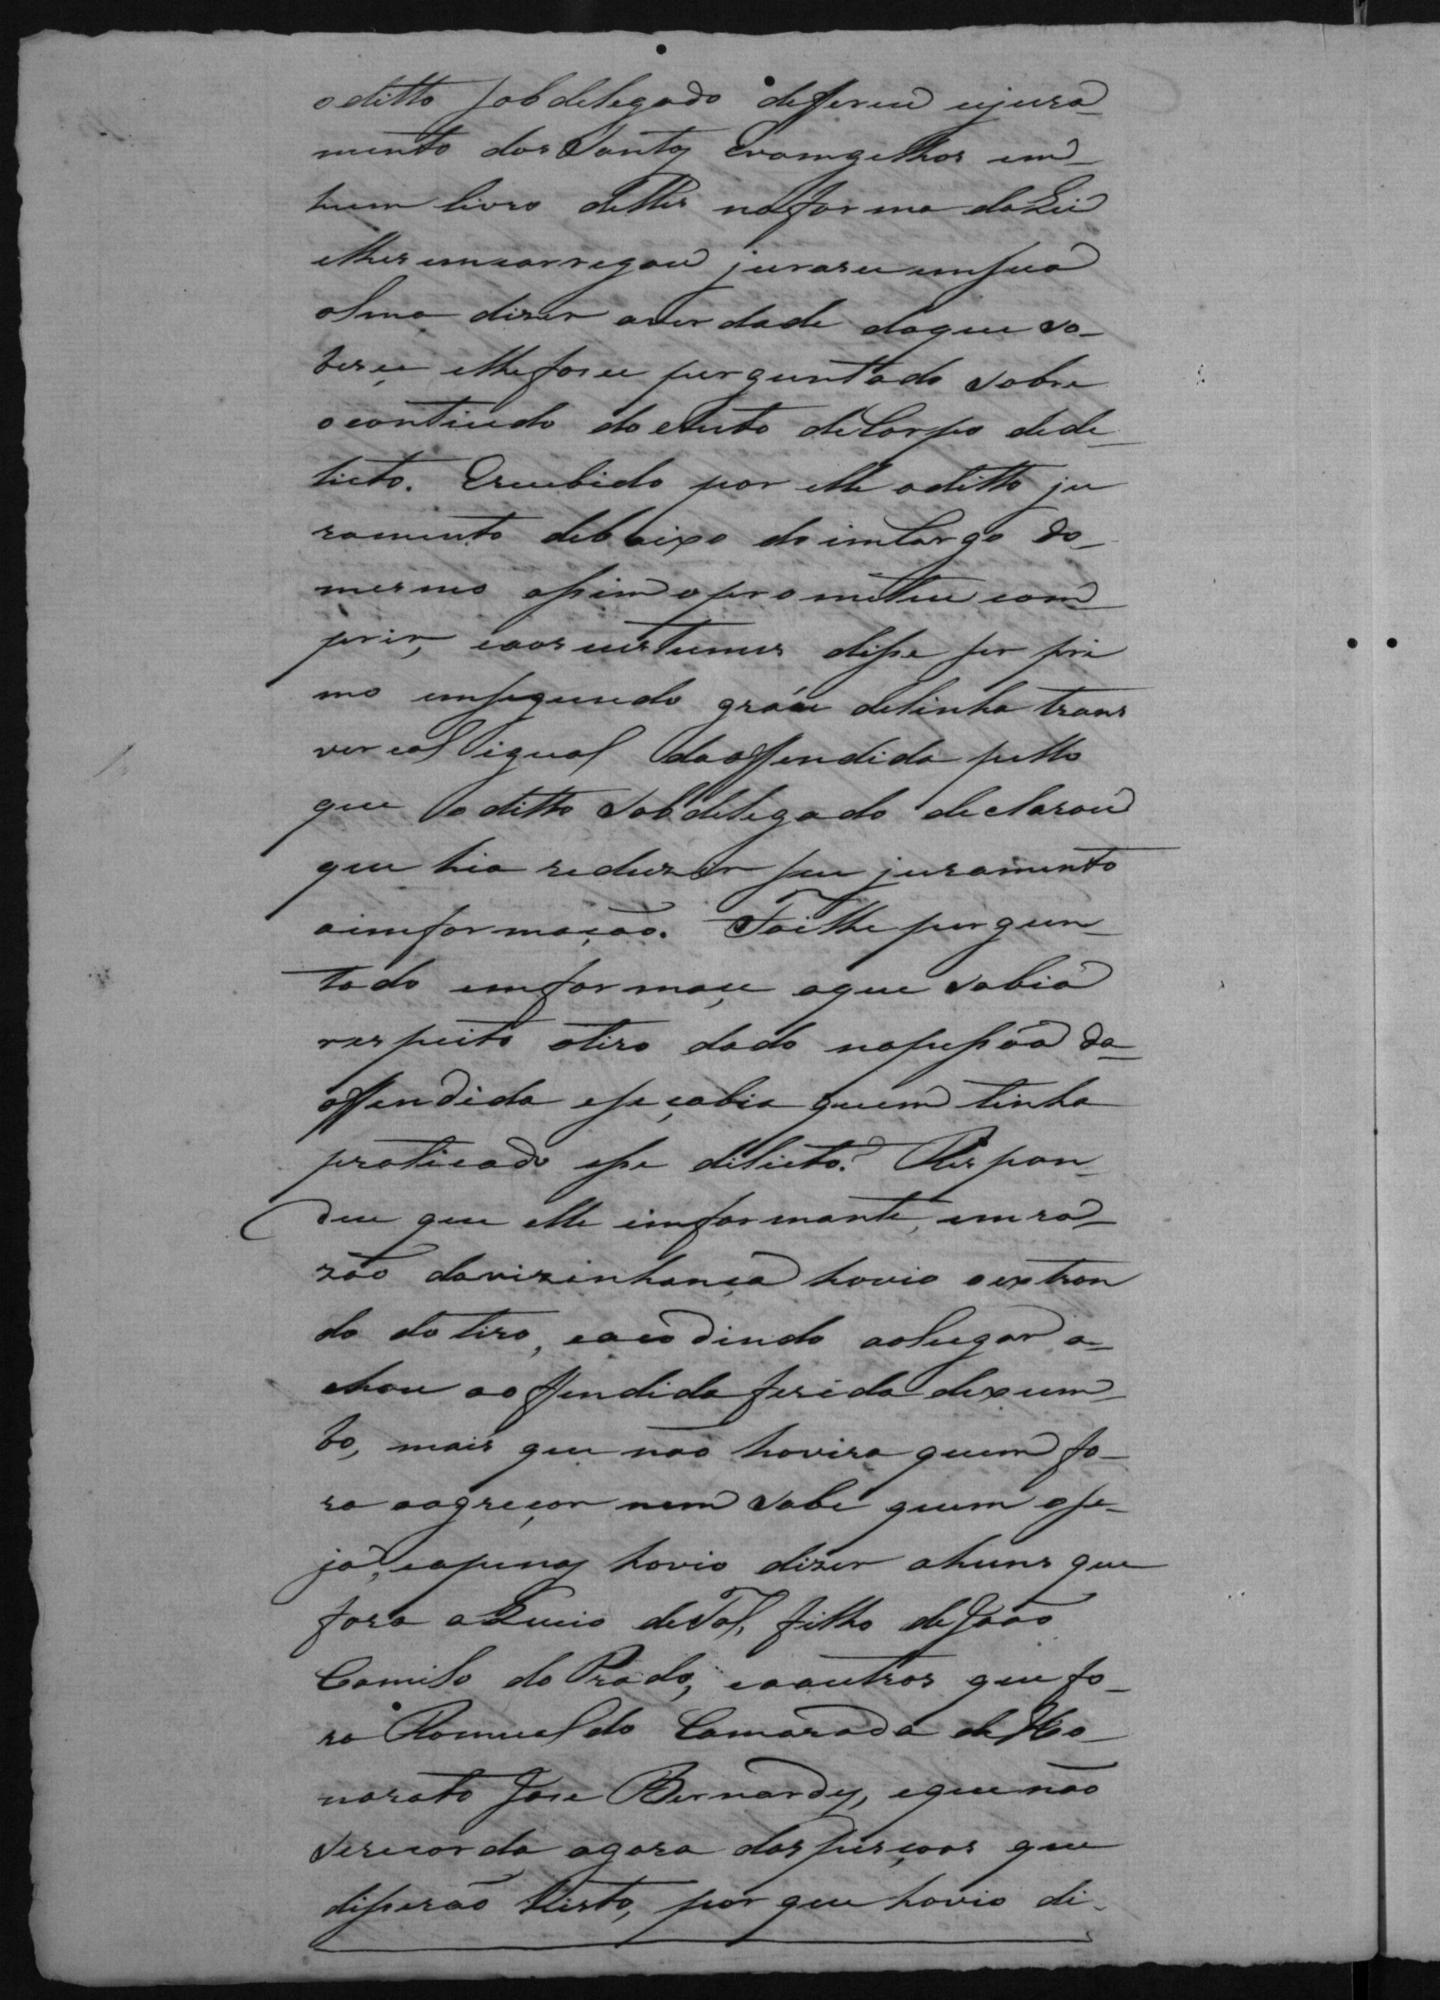 o ditto Sobdelegado defferiu ujura-
mento dos Santos Evomgelhos em-
hum livro delles nafor ma da Lei
elhes emcarregou jurase em sua
alma diser averdade doque so-
bese, elhe fose perguntado sobre
ocontiudo do Auto de Corpo dede-
licto. Erecebido por elle oditto ju
ramento debaixo do imcargo do-
mesmo assim oprometeu com-
prir, eaos custumes disse ser pri
mo emsegundo gráu delinha trans
vercal igual daoffendida pello
que o ditto Sobdelegado declarou
que hia reduzir seu juramento
aimformação. Foi lhe pergun-
tado emformace oque sabia
respeito otiro dado napessôa da-
offendida ese çabia quem tinha
praticado esse delicto? Respon-
deu que elle imformante, emra-
zão davizinhança hovio oextron
do do tiro, eacodindo aolugar a-
chou aoffendida ferida dexum-
bo, mais que não hovira quem fo-
ra oagreçor nem sabe quem ose-
ja, eapenas hovio dizer ahuns que
fora a Lucio de Tal, filho de João
Camilo do Prado, eaoutros que fo-
ra Romualdo Camarada de Ho-
norato Jose Bernardes, eque não
serecorda agora das peçoas que
disserão histo, por que hovio di-